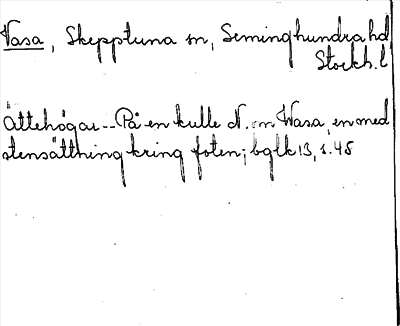 Vasa, Skepptuna sn, Seminghundra hd
Stockh. l
Ättehögar--På en kulle N. om Wasa, en med
stensättning kring foten; bglk 13, s. 48